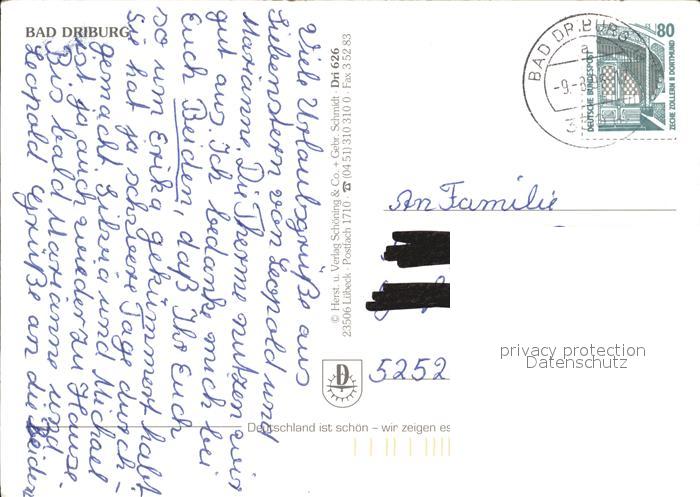 BAD DRIBURG
Viele Urlaubsgrüße aus
Liebenstern von Leopold und
Marianne. Die Therme nutzen wir
gut aus. Ich bedanke mich bei
Euch Beiden, daß Ihr Euch
so um Erika gekümmert habt
Sie hat ja schwere Tage durch-
gemacht. Silvia und Michael
ist ja auch wieder zu Hause.
Bis bald Marianne und
Leopold Grüße an die Beiden
© Herst. u. Verlag Schöning & Co. + Gebr. Schmidt · Dri 626
23506 Lübeck · Postfach 1710 · ☎ (04 51) 310 310 0 · Fax 3 52 83
BAD DRIBURG
a
-9.-8
DEUTSCHE BUNDESPOST
80
ZECHE ZOLLERN II DORTMUND
An Familie
5252
privacy protection
Datenschutz
Deutschland ist schön – wir zeigen es